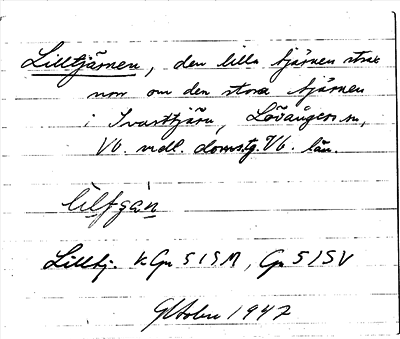 Lilltjärnen, den lilla tjärnen strax
norr om den stora tjärnen
i Svarttjärn, Lövångers sn,
Vb. ndl. domsg. Vb. län.
Lilltj. k Gp 515M, Gp 515V
Oktober 1947